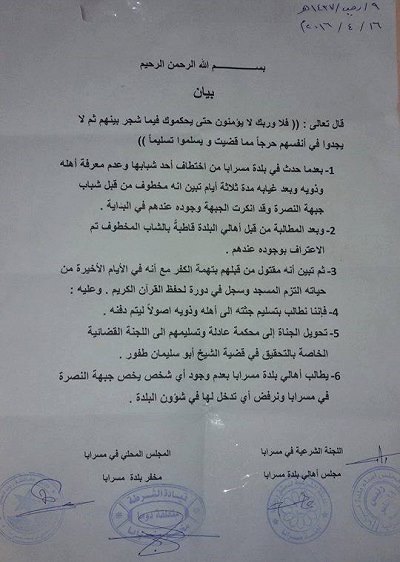 ٩ / رجب / ١٤٣٧هـ
١٦ / ٤ / ٢٠١٦
بســـــم الله الرحمن الرحيم
بيان
قال تعالى : (( فلا وربك لا يؤمنون حتى يحكموك فيما شجر بينهم ثم لا
يجدوا في أنفسهم حرجاً مما قضيت و يسلموا تسليماً ))
1- بعدما حدث في بلدة مسرابا من اختطاف أحد شبابها وعدم معرفة أهله
وذويه وبعد غيابه مدة ثلاثة أيام تبين انه مخطوف من قبل شباب
جبهة النصرة وقد انكرت الجبهة وجوده عندهم في البداية .
2- وبعد المطالبة من قبل أهالي البلدة قاطبةً بالشاب المخطوف تم
الاعتراف بوجوده عندهم .
3- ثم تبين أنه مقتول من قبلهم بتهمة الكفر مع أنه في الأيام الأخيرة من
حياته التزم المسجد وسجل في دورة لحفظ القرآن الكريم . وعليه :
4- فإننا نطالب بتسليم جثته الى أهله وذويه اصولاً ليتم دفنه .
5- تحويل الجناة إلى محكمة عادلة وتسليمهم إلى اللجنة القضائية
الخاصة بالتحقيق في قضية الشيخ أبو سليمان طفور .
6- يطالب أهالي بلدة مسرابا بعدم وجود أي شخص يخص جبهة النصرة
في مسرابا ونرفض أي تدخل لها في شؤون البلدة .
اللجنة الشرعية في مسرابا
المجلس المحلي في مسرابا
مجلس أهالي بلدة مسرابا
مخفر بلدة مسرابا
قيادة الشرطة